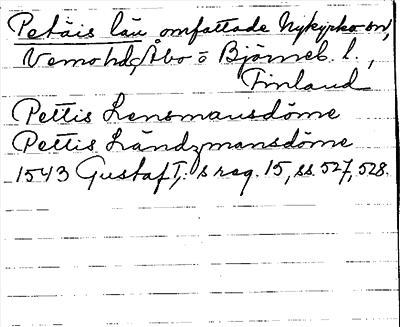 Petäis län omfattade Nykyrko sn,
Vemo hd, Åbo o Björneb. l.,
Finland
Pettis Lensmansdöme
Pettis Ländzmansdöme
1543 Gustaf I:s reg. 15, ss. 527, 528.